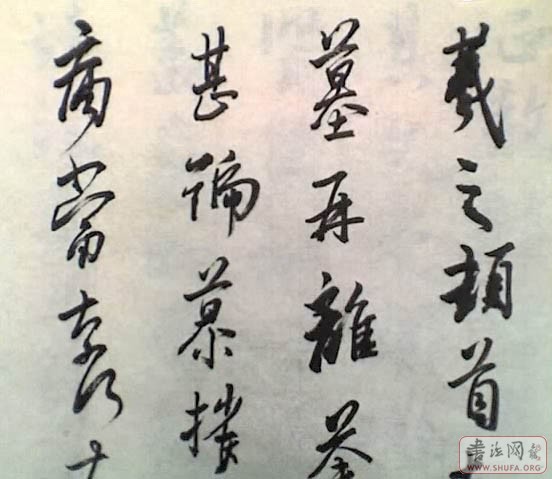 羲之頓首
墓再離荼
甚號慕摧
痛當奈何
書法网
WWW.SHUFA.ORG